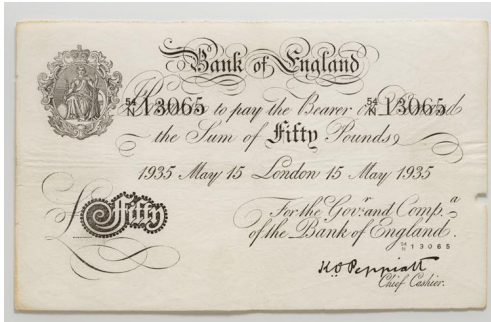 Bank of England
54/N 13065 54/N 13065
Promise to pay the Bearer on Demand
the Sum of Fifty Pounds
1935 May 15 London 15 May 1935
For the Gov.r and Comp.a
of the Bank of England.
54/N 13065
£ Fifty
K O Peppiatt
Chief Cashier.